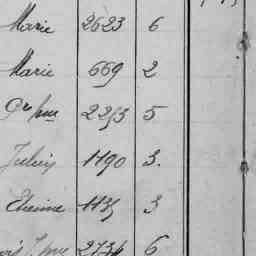 Marie 2623 6
Marie 669 2
2253 5
Julien 1190 3.
Etienne 1135 3
2734 6